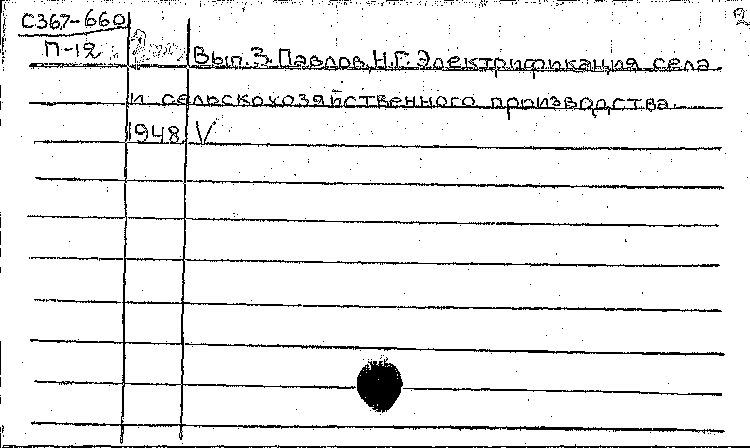 С367-660
П-12 Вып. 3. Павлов, Н.Г. Электрификация села
и сельскохозяйственного производства.
1948 V